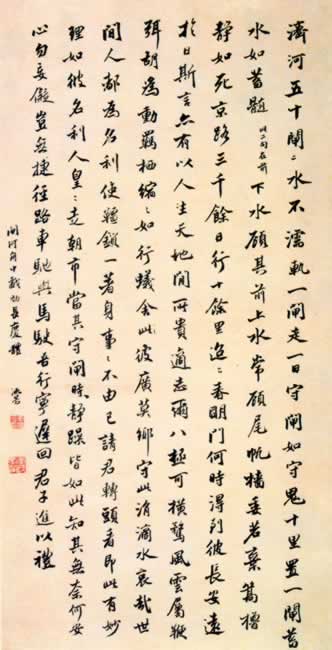 濟河五十閘〻水不濡軌一閘走一日守閘如守鬼十里置一閘蓄
水如蓄髓以二句在前下水顧其前上水常顧尾帆檣委若棄篙櫓
靜如死京路三千餘日行十餘里迢〻春明門何時得到彼長安遠
於日斯言亦有以人生天地間所貴適志爾八極可橫騖風雲屬鞭
弭胡為動羈栖縮〻如行蟻舍此彼廣莫鄉守此涓滴水哀哉世
間人都為名利使韁鎖一著身事〻不由己請君轉頭看即此有妙
理如彼名利人皇〻走朝市當其守閘時靜躁皆如此知其無奈何安
心勿妄儗豈無捷徑路車馳與馬駛古行寧遲回君子進以禮
閘河舟中戲効長慶體